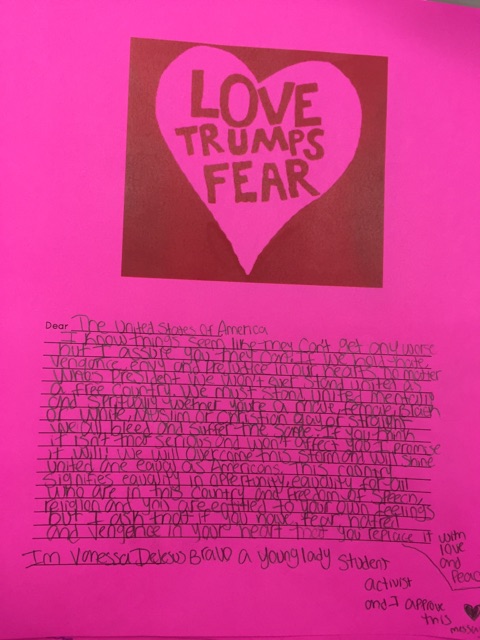 LOVE
TRUMPS
FEAR
Dear The United States Of America
I know things seem like they can't get any worse
but I assure you they can if we hold hate
vengance envy and prejudice in our hearts no matter
who's President we won't ever stand united as
a free country we must stand united mentally
and spiritually whether you're a male, female, Black
or white, Muslim or christian gay or straight
we all bleed and suffer the same. If you think
it isn't that serious and won't affect you I promise
it will! We will overcome this storm and will shine
united and equal as Americans. This country
signifies equality in opertunity, equality for all
who are in this country and freedom of speech,
religion and you are entitled to your own feelings
but I ask that if you have fear, hatred
and vengence in your heart that you replace it with
love
and
Peace
Im Vanessa DeJesus Bravo a young lady student
activist
and I approve
this
message